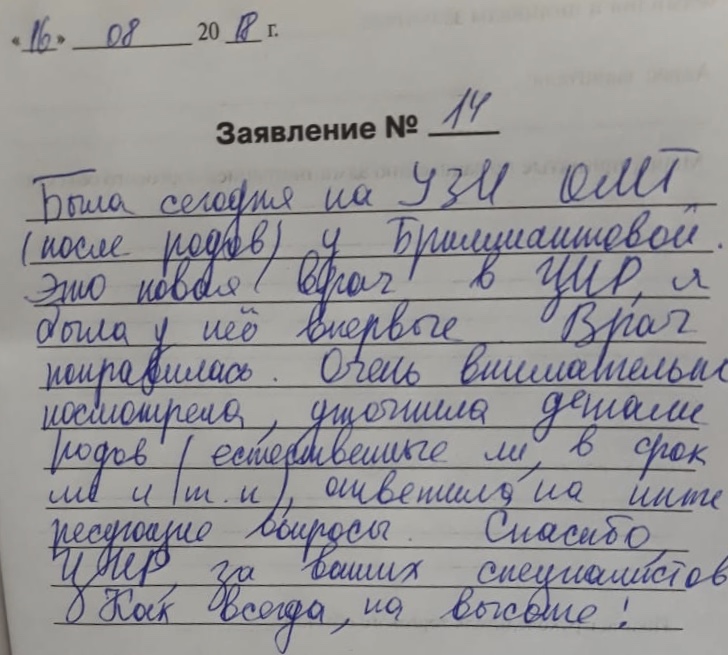 «16» 08 2018 г.
Заявление № 14
Была сегодня на УЗИ ОМТ
(после родов) у Бриллиантовой.
Это новая врач в ЦИР, я
была у неё впервые Врач
понравилась. Очень внимательно
посмотрела, уточнила детали
родов (естественные ли, в срок
ли и т.п), ответила на инте
ресующие вопросы. Спасибо,
ЦИР, за ваших специалистов
Как всегда, на высоте!